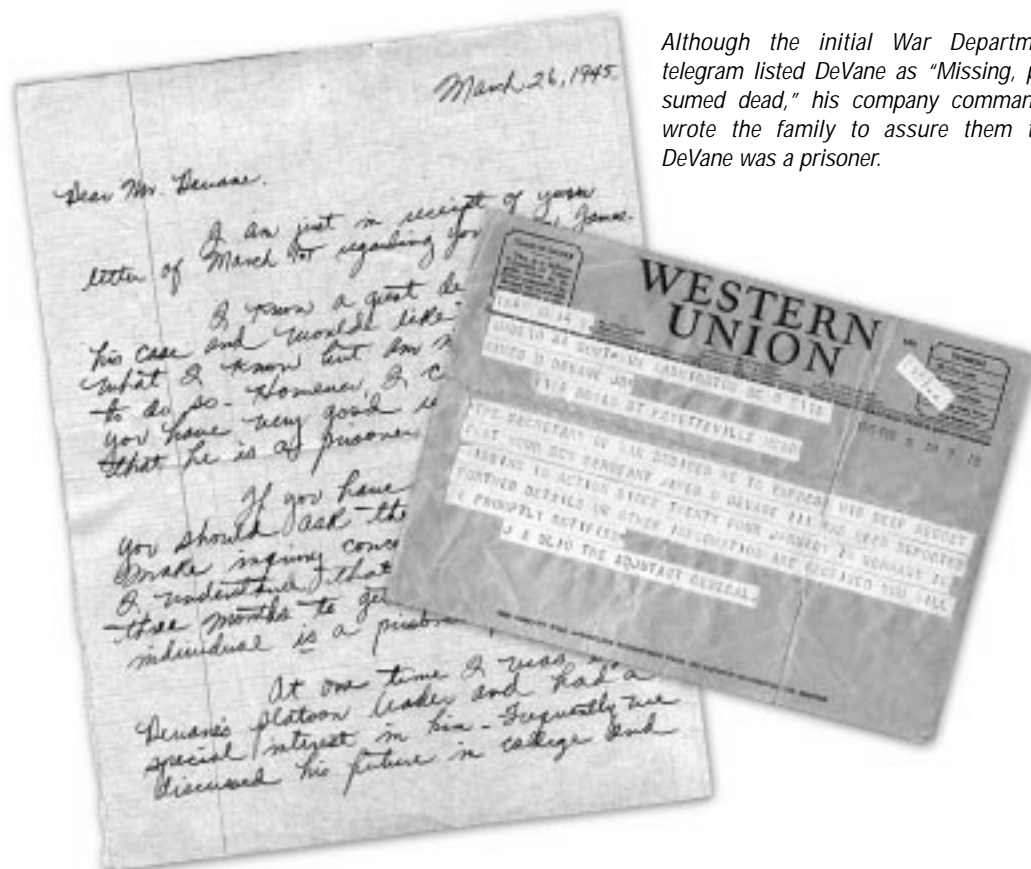 Although the initial War Departm
telegram listed DeVane as “Missing, p
sumed dead,” his company comman
wrote the family to assure them t
DeVane was a prisoner.
March 26, 1945.
Dear Mr. Devane.
I am just in receipt of your
letter of March regarding you James.
I know a great de
his case and would like
what I know but am n
to do so. However, I c
you have very good
that he is a prisoner
If you have
you should ask the
make inquiry conce
I understand that
three months to ge
individual is a prisoner
At one time I was
Devane's platoon leader and had a
special interest in him - Frequently we
discussed his future in college and
WESTERN
UNION
WASHINGTON DC
JAMES D DEVANE
BROAD ST FAYETTEVILLE
THE SECRETARY OF WAR DESIRES ME TO EXPRESS HIS DEEP REGRET
THAT YOUR SON SERGEANT JAMES D DEVANE III HAS BEEN REPORTED
MISSING IN ACTION SINCE TWENTY FOUR JANUARY IN GERMANY IF
FURTHER DETAILS OR OTHER INFORMATION ARE RECEIVED YOU WILL
BE PROMPTLY NOTIFIED
J A ULIO THE ADJUTANT GENERAL